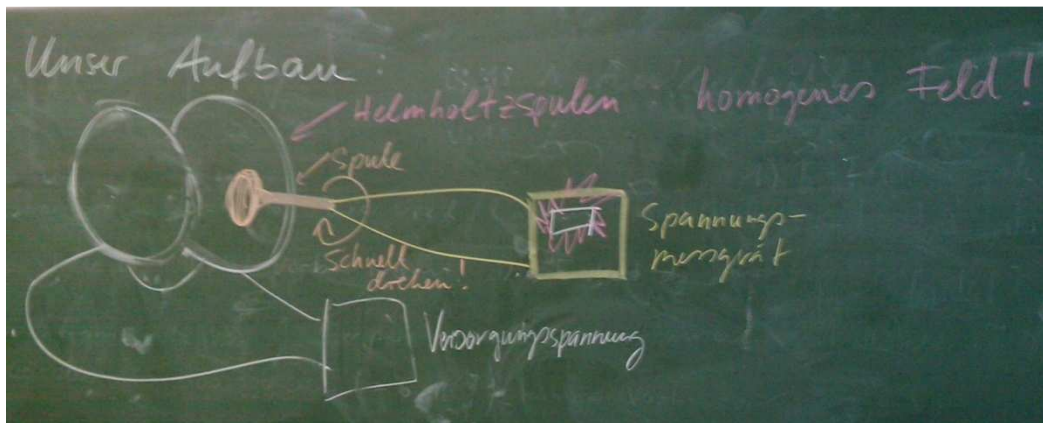 Unser Aufbau:
Helmholtzspulen : homogenes Feld!
Spule
Schnell
drehen!
Spannungs-
messgrät
Versorgungsspannung